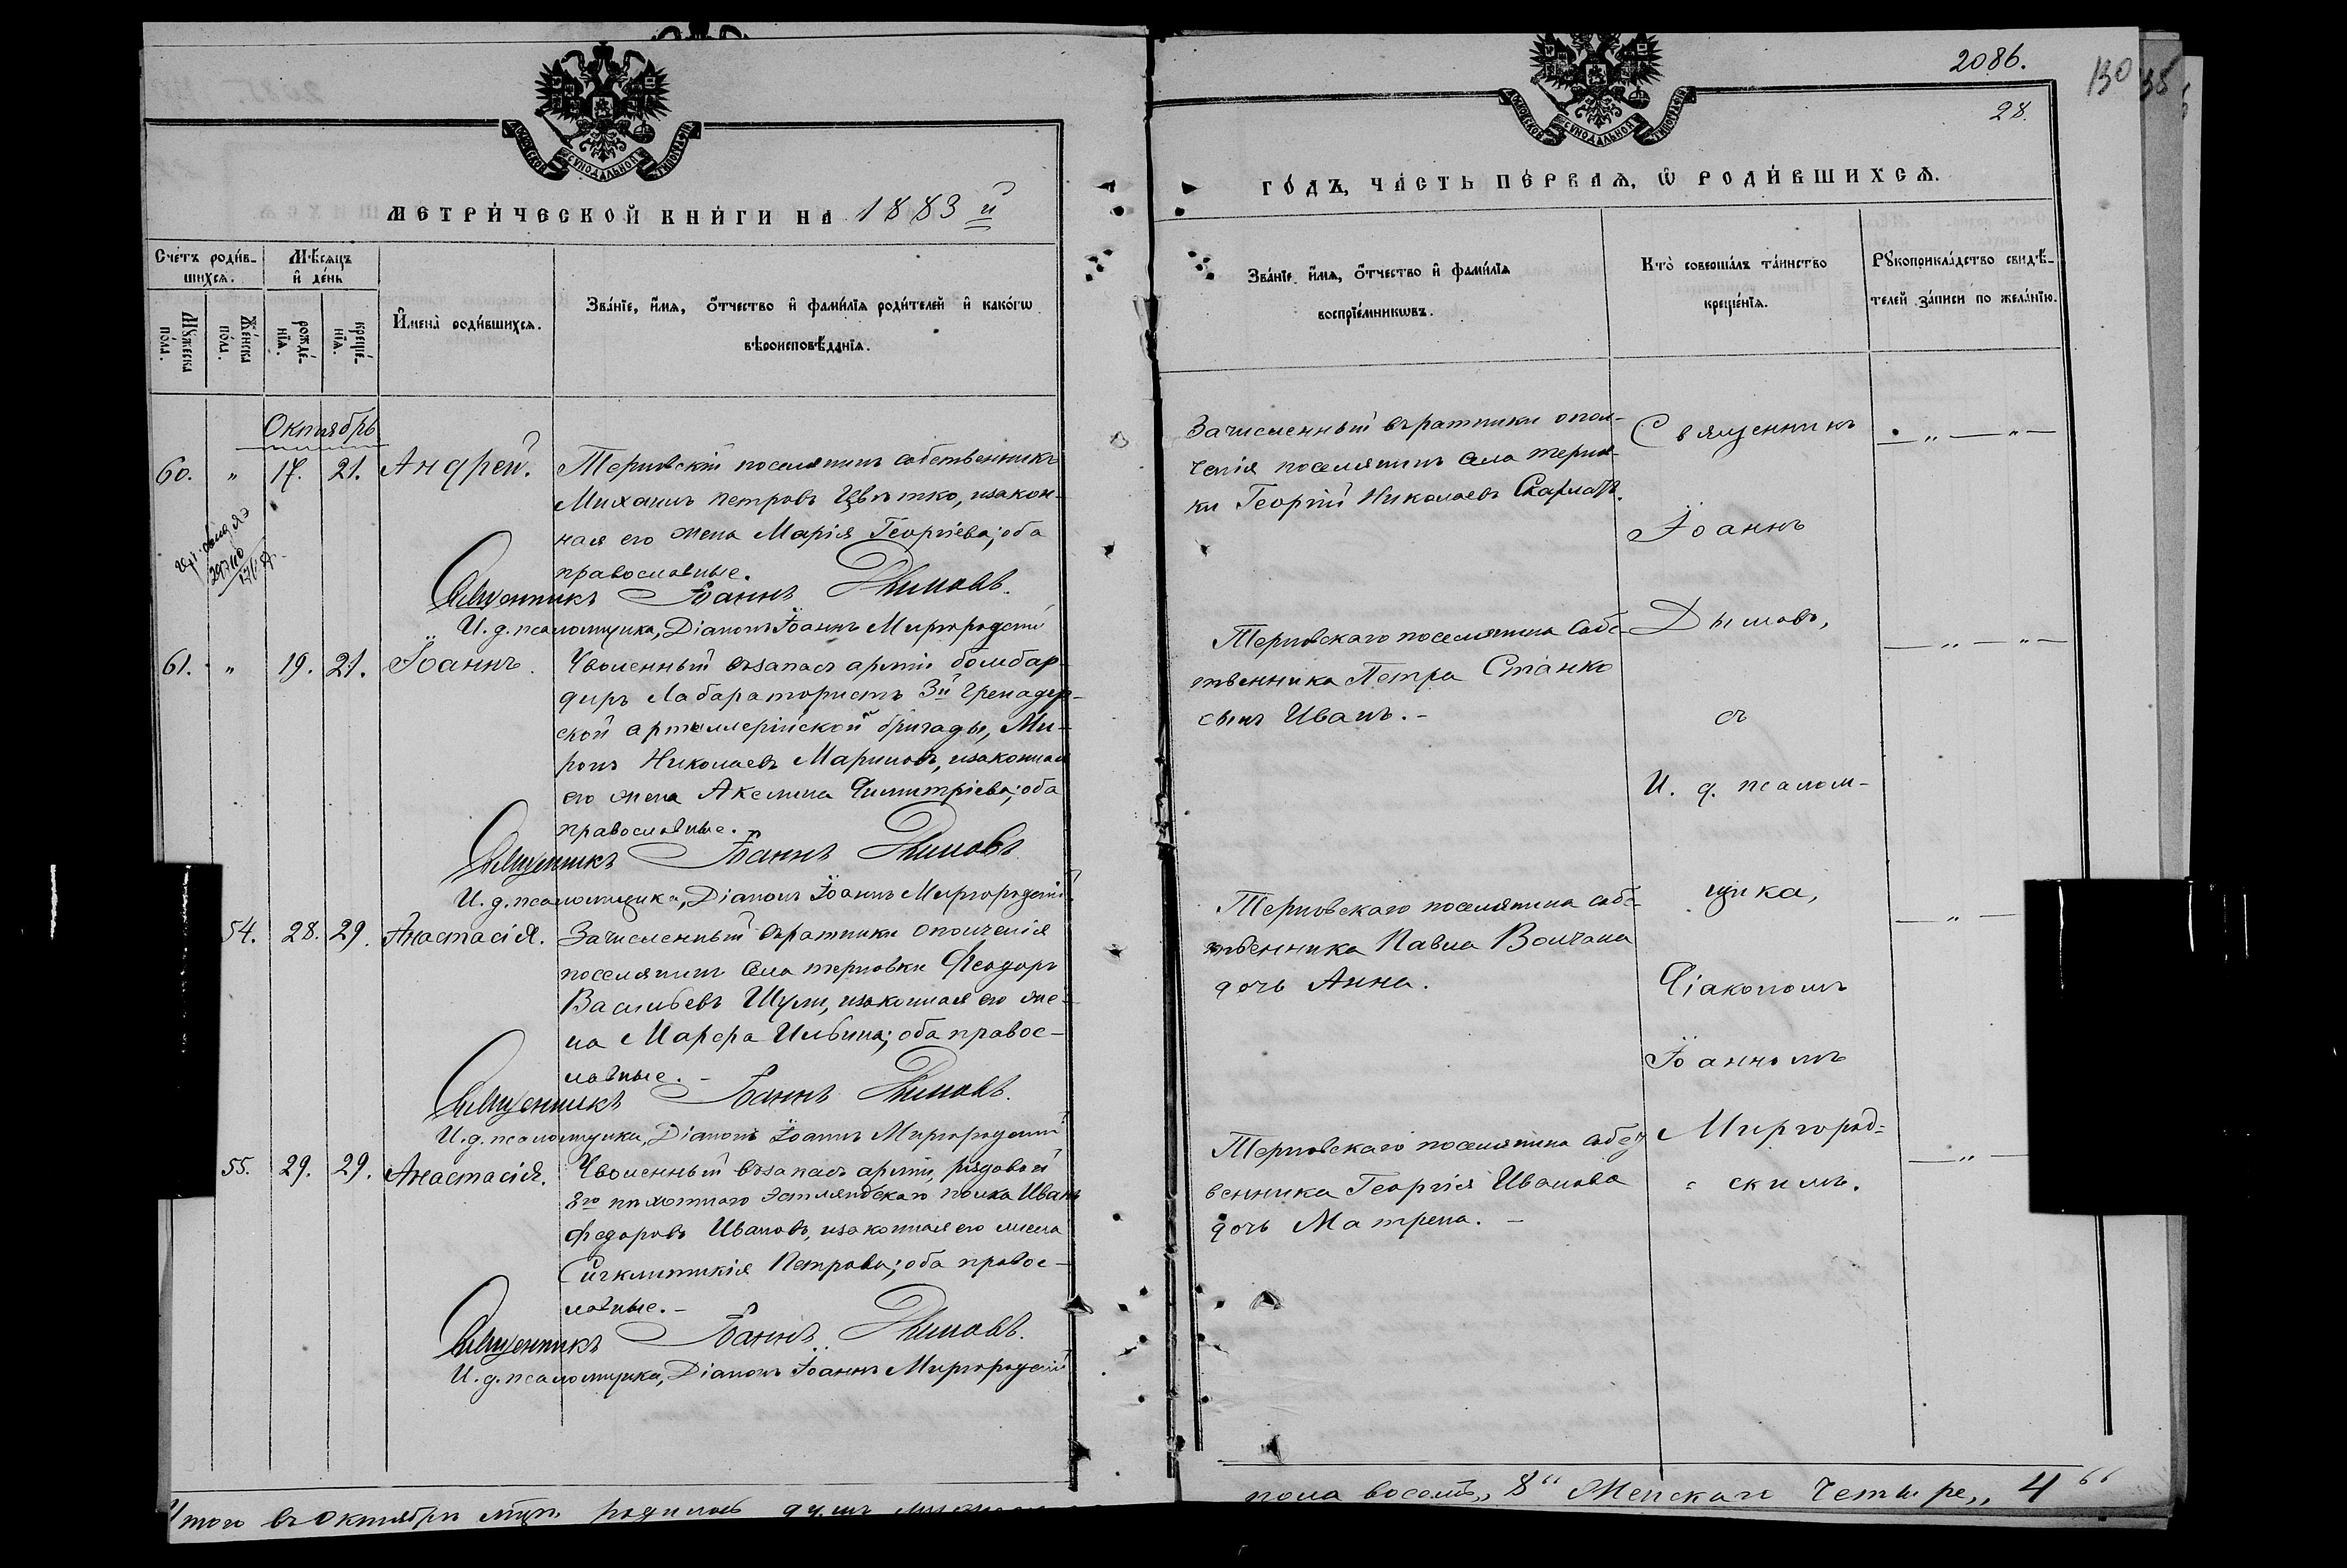 МЕТРИ́ЧЕСКОЙ КНИ́ГИ НА 1883й
Сче́тъ роди́в-
шихсѧ.
Мѣ́сяцъ
и̂ де́нь
Мꙋ́жеска
по́ла.
Же́нска
по́ла.
рожде́-
нїѧ.
креще́-
нїѧ.
И̂мена̀ роди́вшихсѧ.
Зва́нїе, и̂́мѧ, о̂́тчество и̂ фами́лїѧ роди́телей и̂ како́гѡ
вѣроисповѣ́данїѧ.
Октябрь
60. " 17. 21. Андрей. Терновскій поселянинъ собственникъ
Михаилъ Петровъ Цвѣтко, изакон-
ная его жена Марія Георгіева; оба
православные.
Священникъ Іоаннъ Дымовъ.
И. д. псаломщика, Діаконъ Іоаннъ Миргородскій
61. " 19. 21. Іоаннъ. Уволенный възапасъ арміи бомбар-
диръ Лабаратористъ 3й Гренадер-
ской артиллерійской бригады, Ми-
ронъ Николаевъ Мариновъ, изаконная
его жена Акелина Димитріева; оба
православные.
Священникъ Іоаннъ Дымовъ
И. д. псаломщика, Діаконъ Іоаннъ Миргородскій
54. 28. 29. Анастасія. Зачисленный въратники ополченія
поселянинъ села терновки Феодоръ
Васильевъ Шули, изаконная его же-
на Марфа Ильина; оба правос-
лавные.-
Священникъ Іоаннъ Дымовъ.
И. д. псаломщика, Діаконъ Іоаннъ Миргородскій
55. 29. 29. Анастасія. Уволенный възапасъ арміи, рядовой
8го пѣхотнаго Эстляндскаго полка Иванъ
Федоровъ Ивановъ, изаконная его жена
Сигклитикія Петрова; оба правос-
лавные.-
Священникъ Іоаннъ Дымовъ.
И. д. псаломщика, Діаконъ Іоаннъ Миргородскій
Итого въ Октябрѣ мцѣ родилось душъ
2086.
130
28.
ГО́ДЪ, ЧА́СТЬ ПЕ́РВАѦ, Ѡ РОДИ́ВШИХСѦ.
Зва́нїе, и̂́мѧ, о̂́тчество и̂ фами́лїѧ
воспрїе́мникѡвъ.
Кто̀ соверша́лъ та́инство
креще́нїѧ.
Рꙋкоприкла́дство свидѣ́-
телей за́писи по жела́нїю.
Зачисленный въратники опол-
ченія поселянинъ села Тернов-
ки Георгій Николаевъ Скарлатъ.
Терновскаго поселянина Собс-
твенника Петра Станко
сынъ Иванъ.-
Терновскаго поселянина собс-
твенника Павла Волчана
дочь Анна.
Терновскаго поселянина собст
венника Георгія Иванова
дочь Матрена.-
Священникъ
Іоаннъ
Дымовъ,
съ
И. д. псалом-
щика,
Діакономъ
Іоанномъ
Миргород-
скимъ.
пола восемь „8" Женскаго Четыре „4"